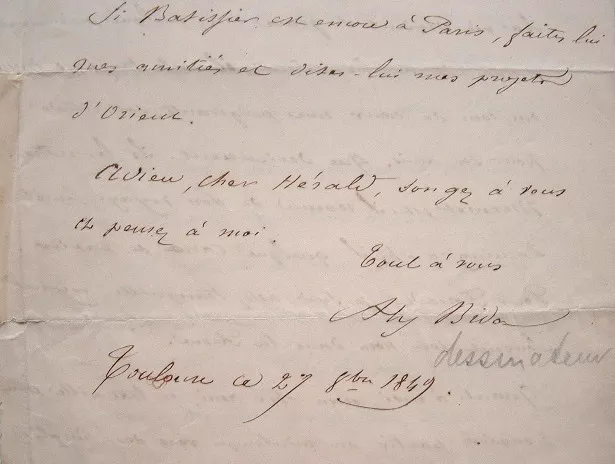 Si Batissier est encore à Paris, faites lui
mes amitiés et dites-lui mes projets
d'Orient.
Adieu, cher Hérald, songez à vous
et pensez à moi.
Tout à vous
dessinateur
ce 27 9bre 1849.